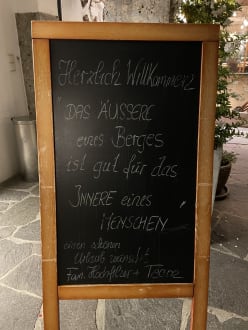 Herzlich Willkommen!
"DAS ÄUSSERE
eines Berges
ist gut für das
INNERE eines
MENSCHEN
einen schönen
Urlaub wünscht
Fam. + Team